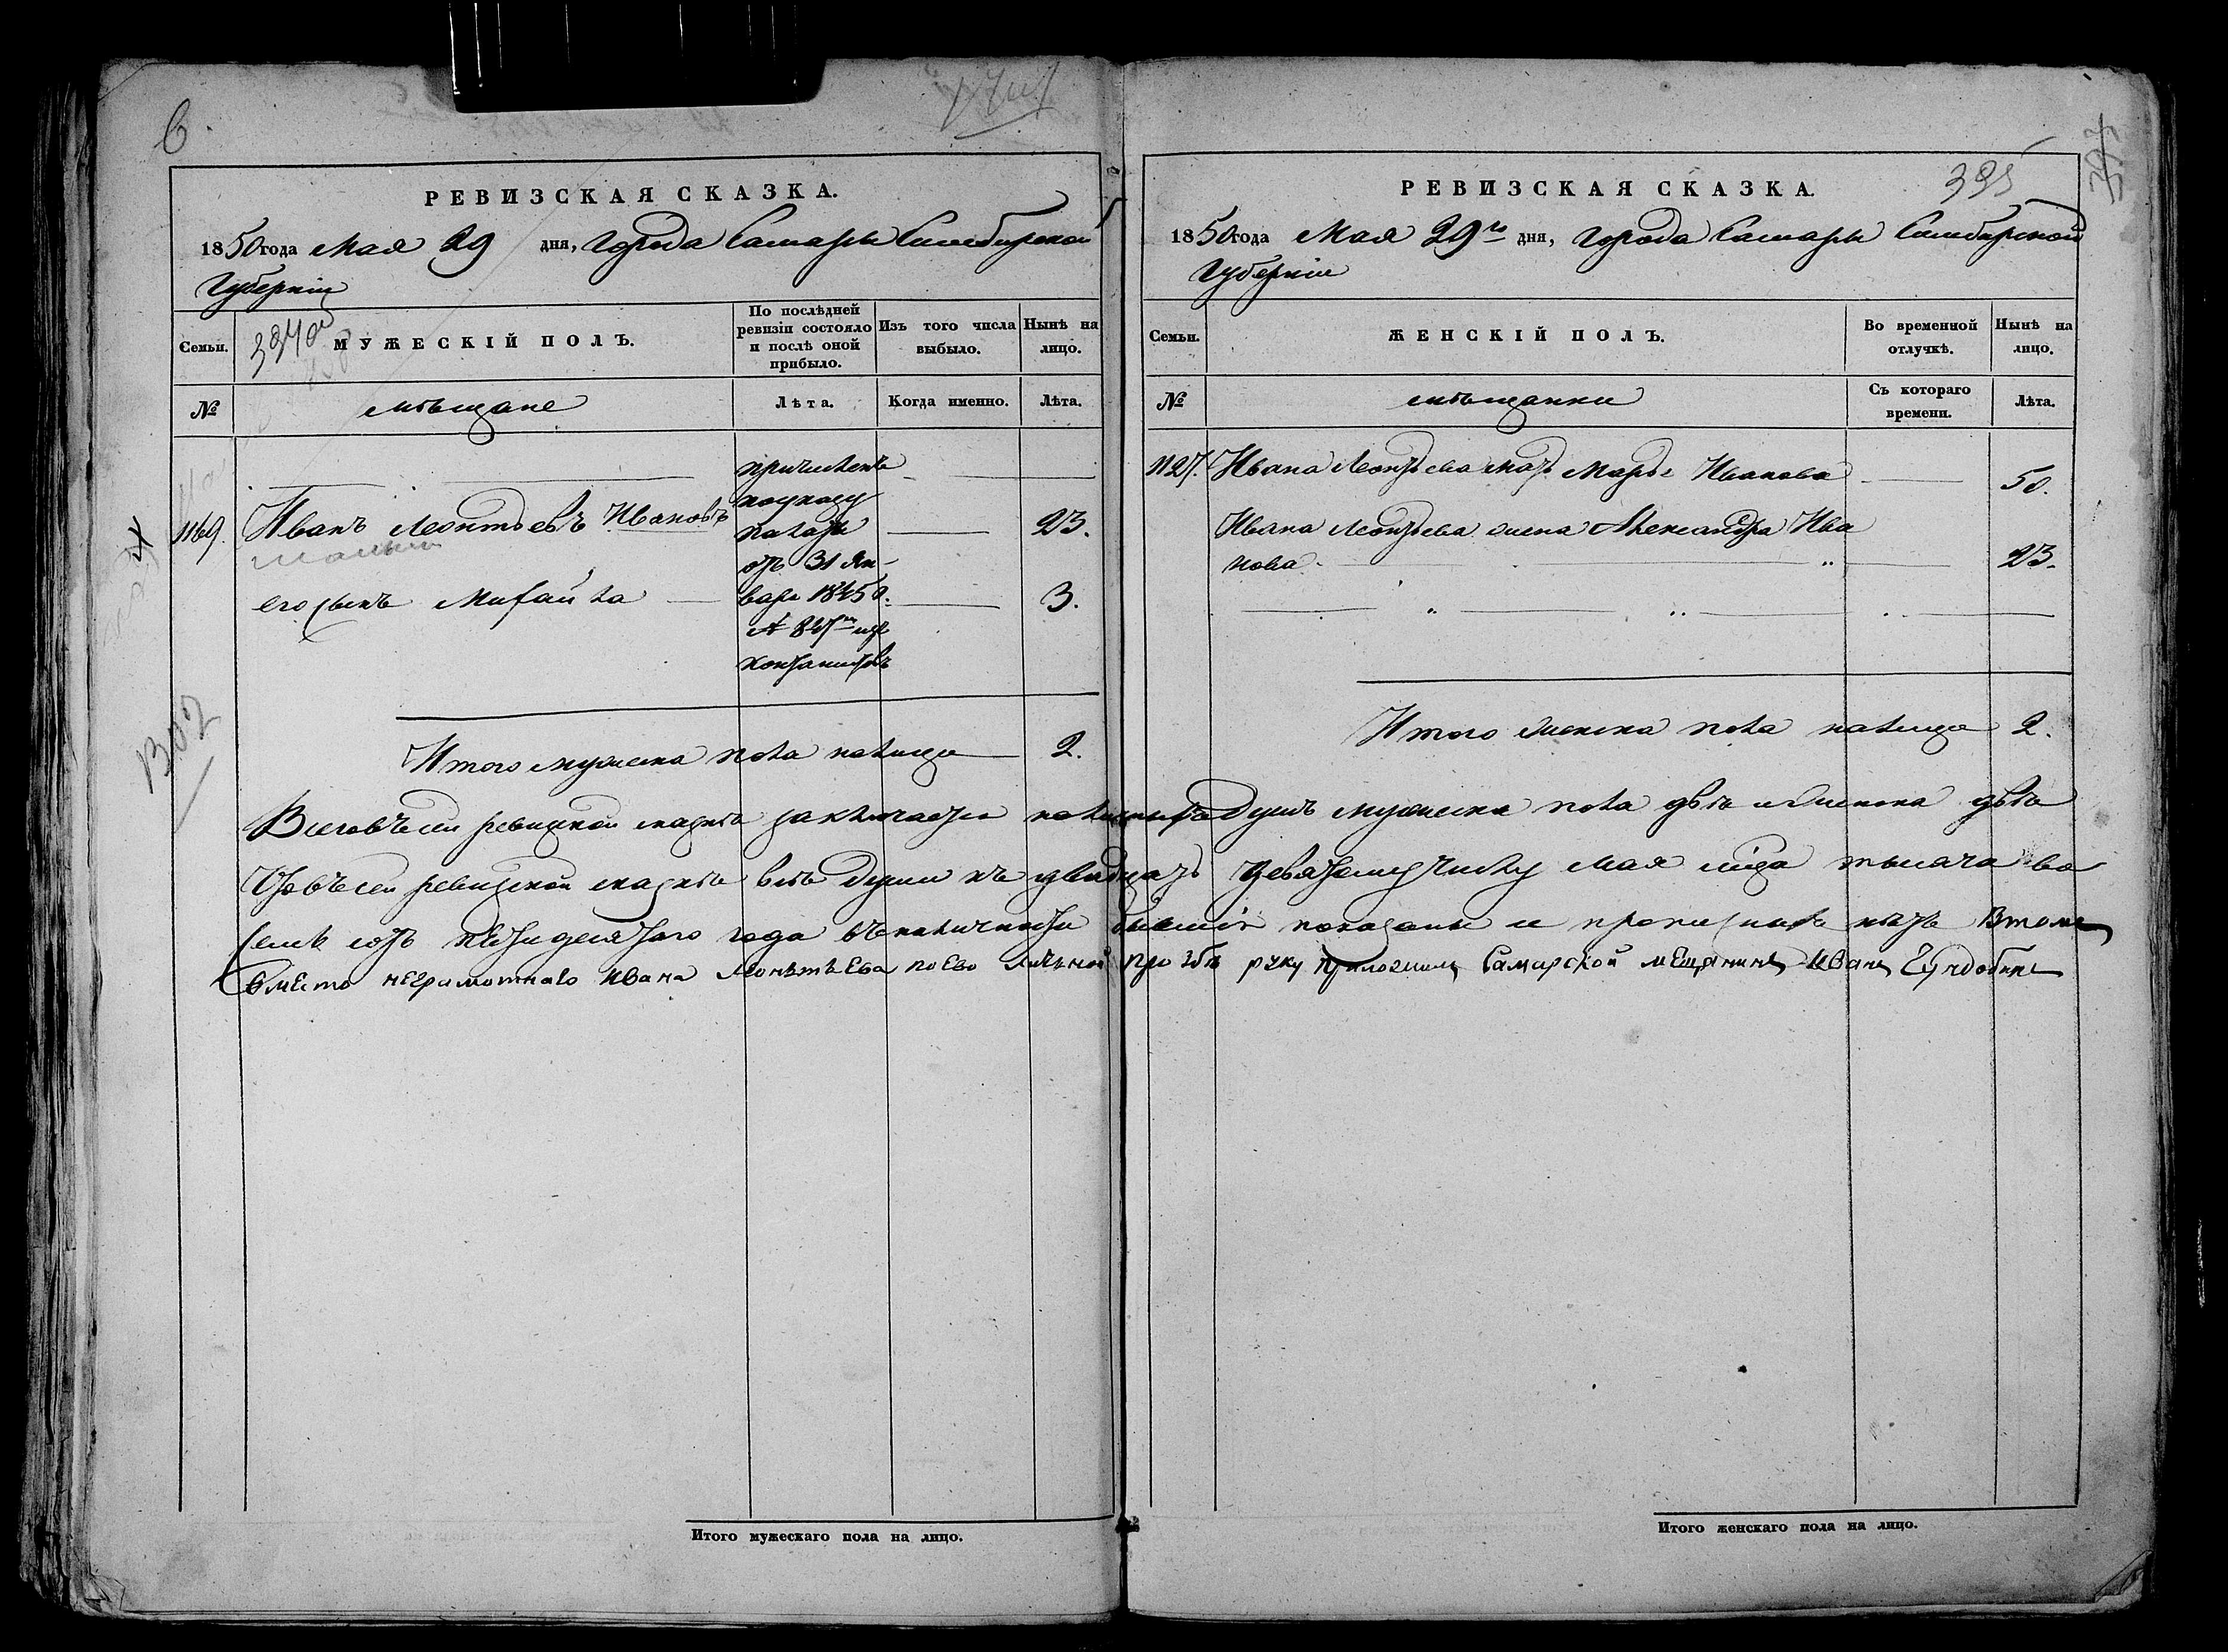 6.
РЕВИЗСКАЯ СКАЗКА.
1850 года Мая 29 дня, города Самары Симбирской
Губерніи
Семьи.
МУЖЕСКІЙ ПОЛЪ.
По послѣдней
ревизіи состояло
и послѣ оной
прибыло.
Изъ того числа
выбыло.
Нынѣ на
лицо.
№
мѣщане
Лѣта.
Когда именно.
Лѣта.
причисленъ
по указу
палаты
1169. Иванъ Леонтьевъ Ивановъ 23.
отъ 31 Ян-
его сынъ Михайла варя 1850. 3.
кантонистовъ
Итого мужеска пола налицо 2.
1302
РЕВИЗСКАЯ СКАЗКА.
395
1850 года Мая 29го дня, города Самары Симбирской
Губерніи
Семьи.
ЖЕНСКІЙ ПОЛЪ.
Во временной
отлучкѣ.
Нынѣ на
лицо.
№
мѣщанки
Съ котораго
времени.
Лѣта.
1127. Ивана Леонтьева мать Марья Иванова 50.
Ивана Леонтьева жена Александра Ива
нова 23.
Итого женска пола налицо 2.
Всего въ сей ревизской сказкѣ заключается налицо душъ мужеска пола двѣ и женска двѣ
Что въ сей ревизской сказкѣ всѣ души къ двадцать девятому числу Мая мца тысяча во
семь сотъ пятидесятаго года въ наличности бывшія показаны и прописныхъ нѣтъ Втомъ
вместо неграмотнаго Ивана Леонтьева по Ево личьной прозбе руку приложилъ Самарской мещанинъ Иванъ
Итого мужескаго пола на лицо.
Итого женскаго пола на лицо.